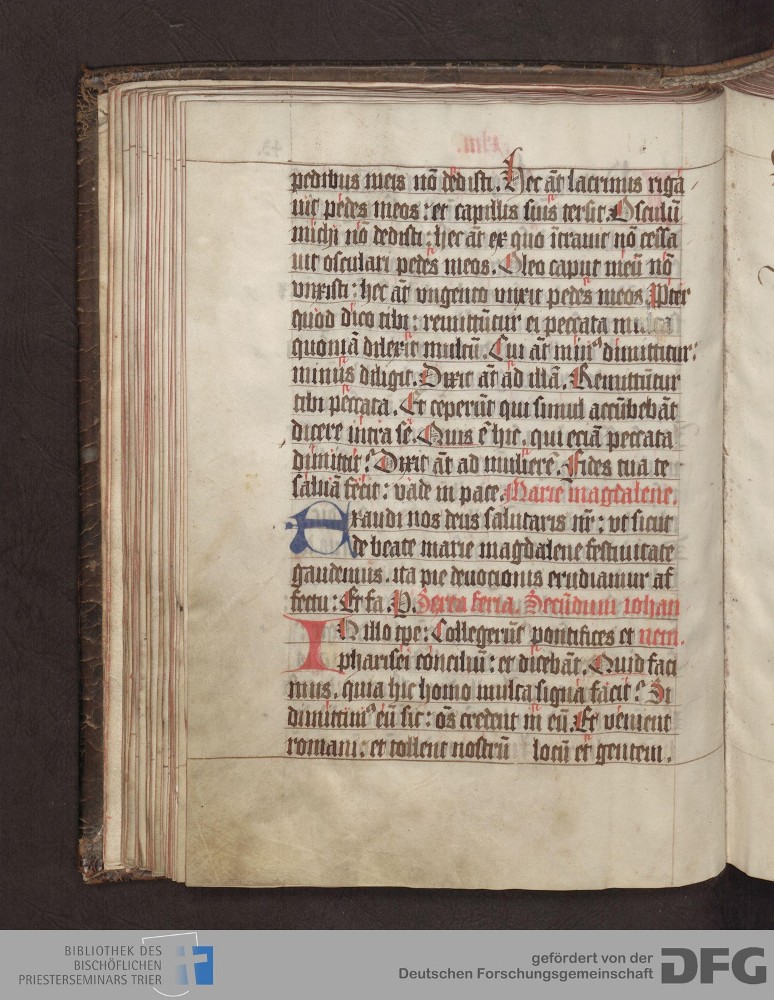 pedibus meis nō dedisti. Hec āt lacrimis riga
uit pedes meos: et capillis suis tersit. Osculū
michi nō dedisti: hec āt ex quo ītrauit nō cessa
uit osculari pedes meos. Oleo caput meū nō
vnxisti: hec āt vngento vnxit pedes meos. Pter
quod dico tibi: remittūtur ei peccata multa
quoniā dilexit multū. Cui āt minꝰ dimittitur:
minus diligit. Dixit āt ad illā. Remittūtur
tibi peccata. Et ceperūt qui simul accūbebāt
dicere intra se. Quis ē hic. qui eciā peccata
dimittit? Dixit āt ad mulierē. Fides tua te
saluā fecit: vade in pace. Marie magdalene.
Exaudi nos deus salutaris nr̄: vt sicut
de beate marie magdalene festiuitate
gaudemus. ita pie deuocionis erudiamur af
fectu: Et fa. P. Sexta feria. Secūdum iohan
IN illo tpe: Collegerūt pontifices et nem.
pharisei conciliū: et dicebāt. Quid faci
mus. quia hic homo multa signa facit? Si
dimittimꝰ eū sic: oēs credent in eū. Et venient
romani: et tollent nostrū locū et gentem.
BIBLIOTHEK DES
BISCHÖFLICHEN
PRIESTERSEMINARS TRIER
gefördert von der
Deutschen Forschungsgemeinschaft
DFG